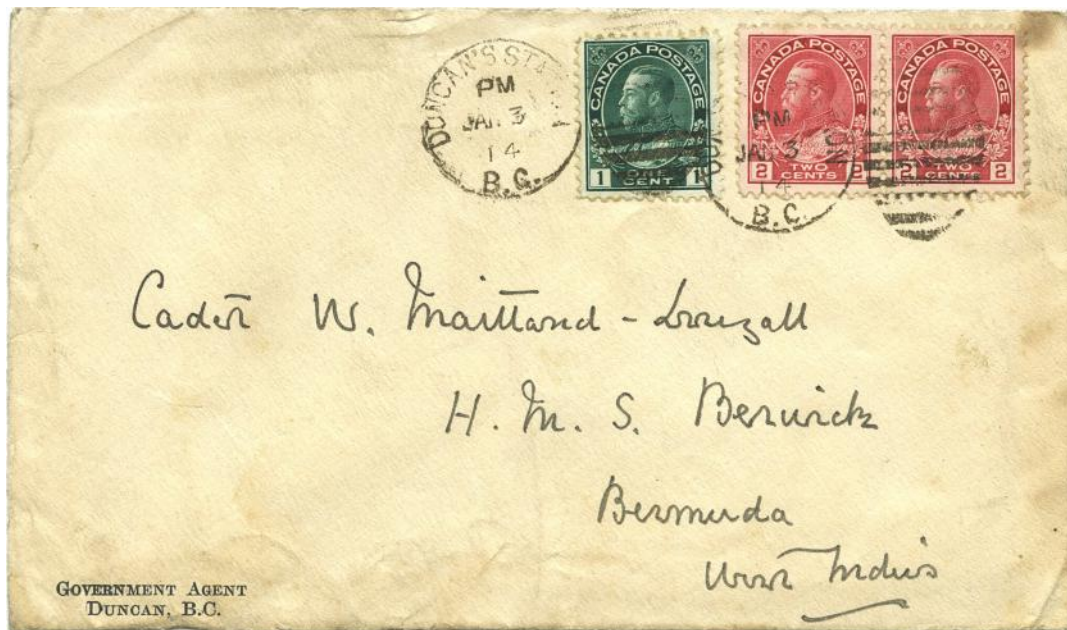 DUNCAN'S STATION
PM
JAN 3
14
B.C.
CANADA POSTAGE
1 ONE CENT 1
CANADA POSTAGE
2 TWO CENTS 2
CANADA POSTAGE
2 TWO CENTS 2
PM
JAN 3
14
B.C.
Cadet W. Maitland-Dougall
H. M. S. Berwick
Bermuda
West Indies
GOVERNMENT AGENT
DUNCAN, B.C.